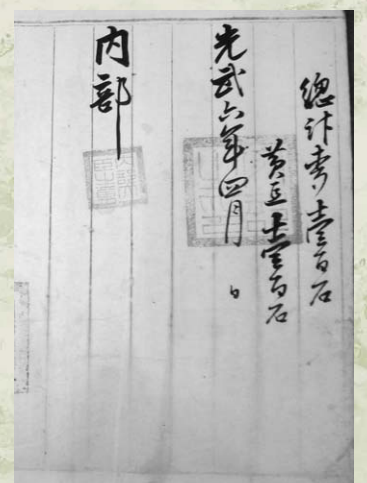 總計 壹百石
黃豆 壹百石
光武六年四月 日
內部